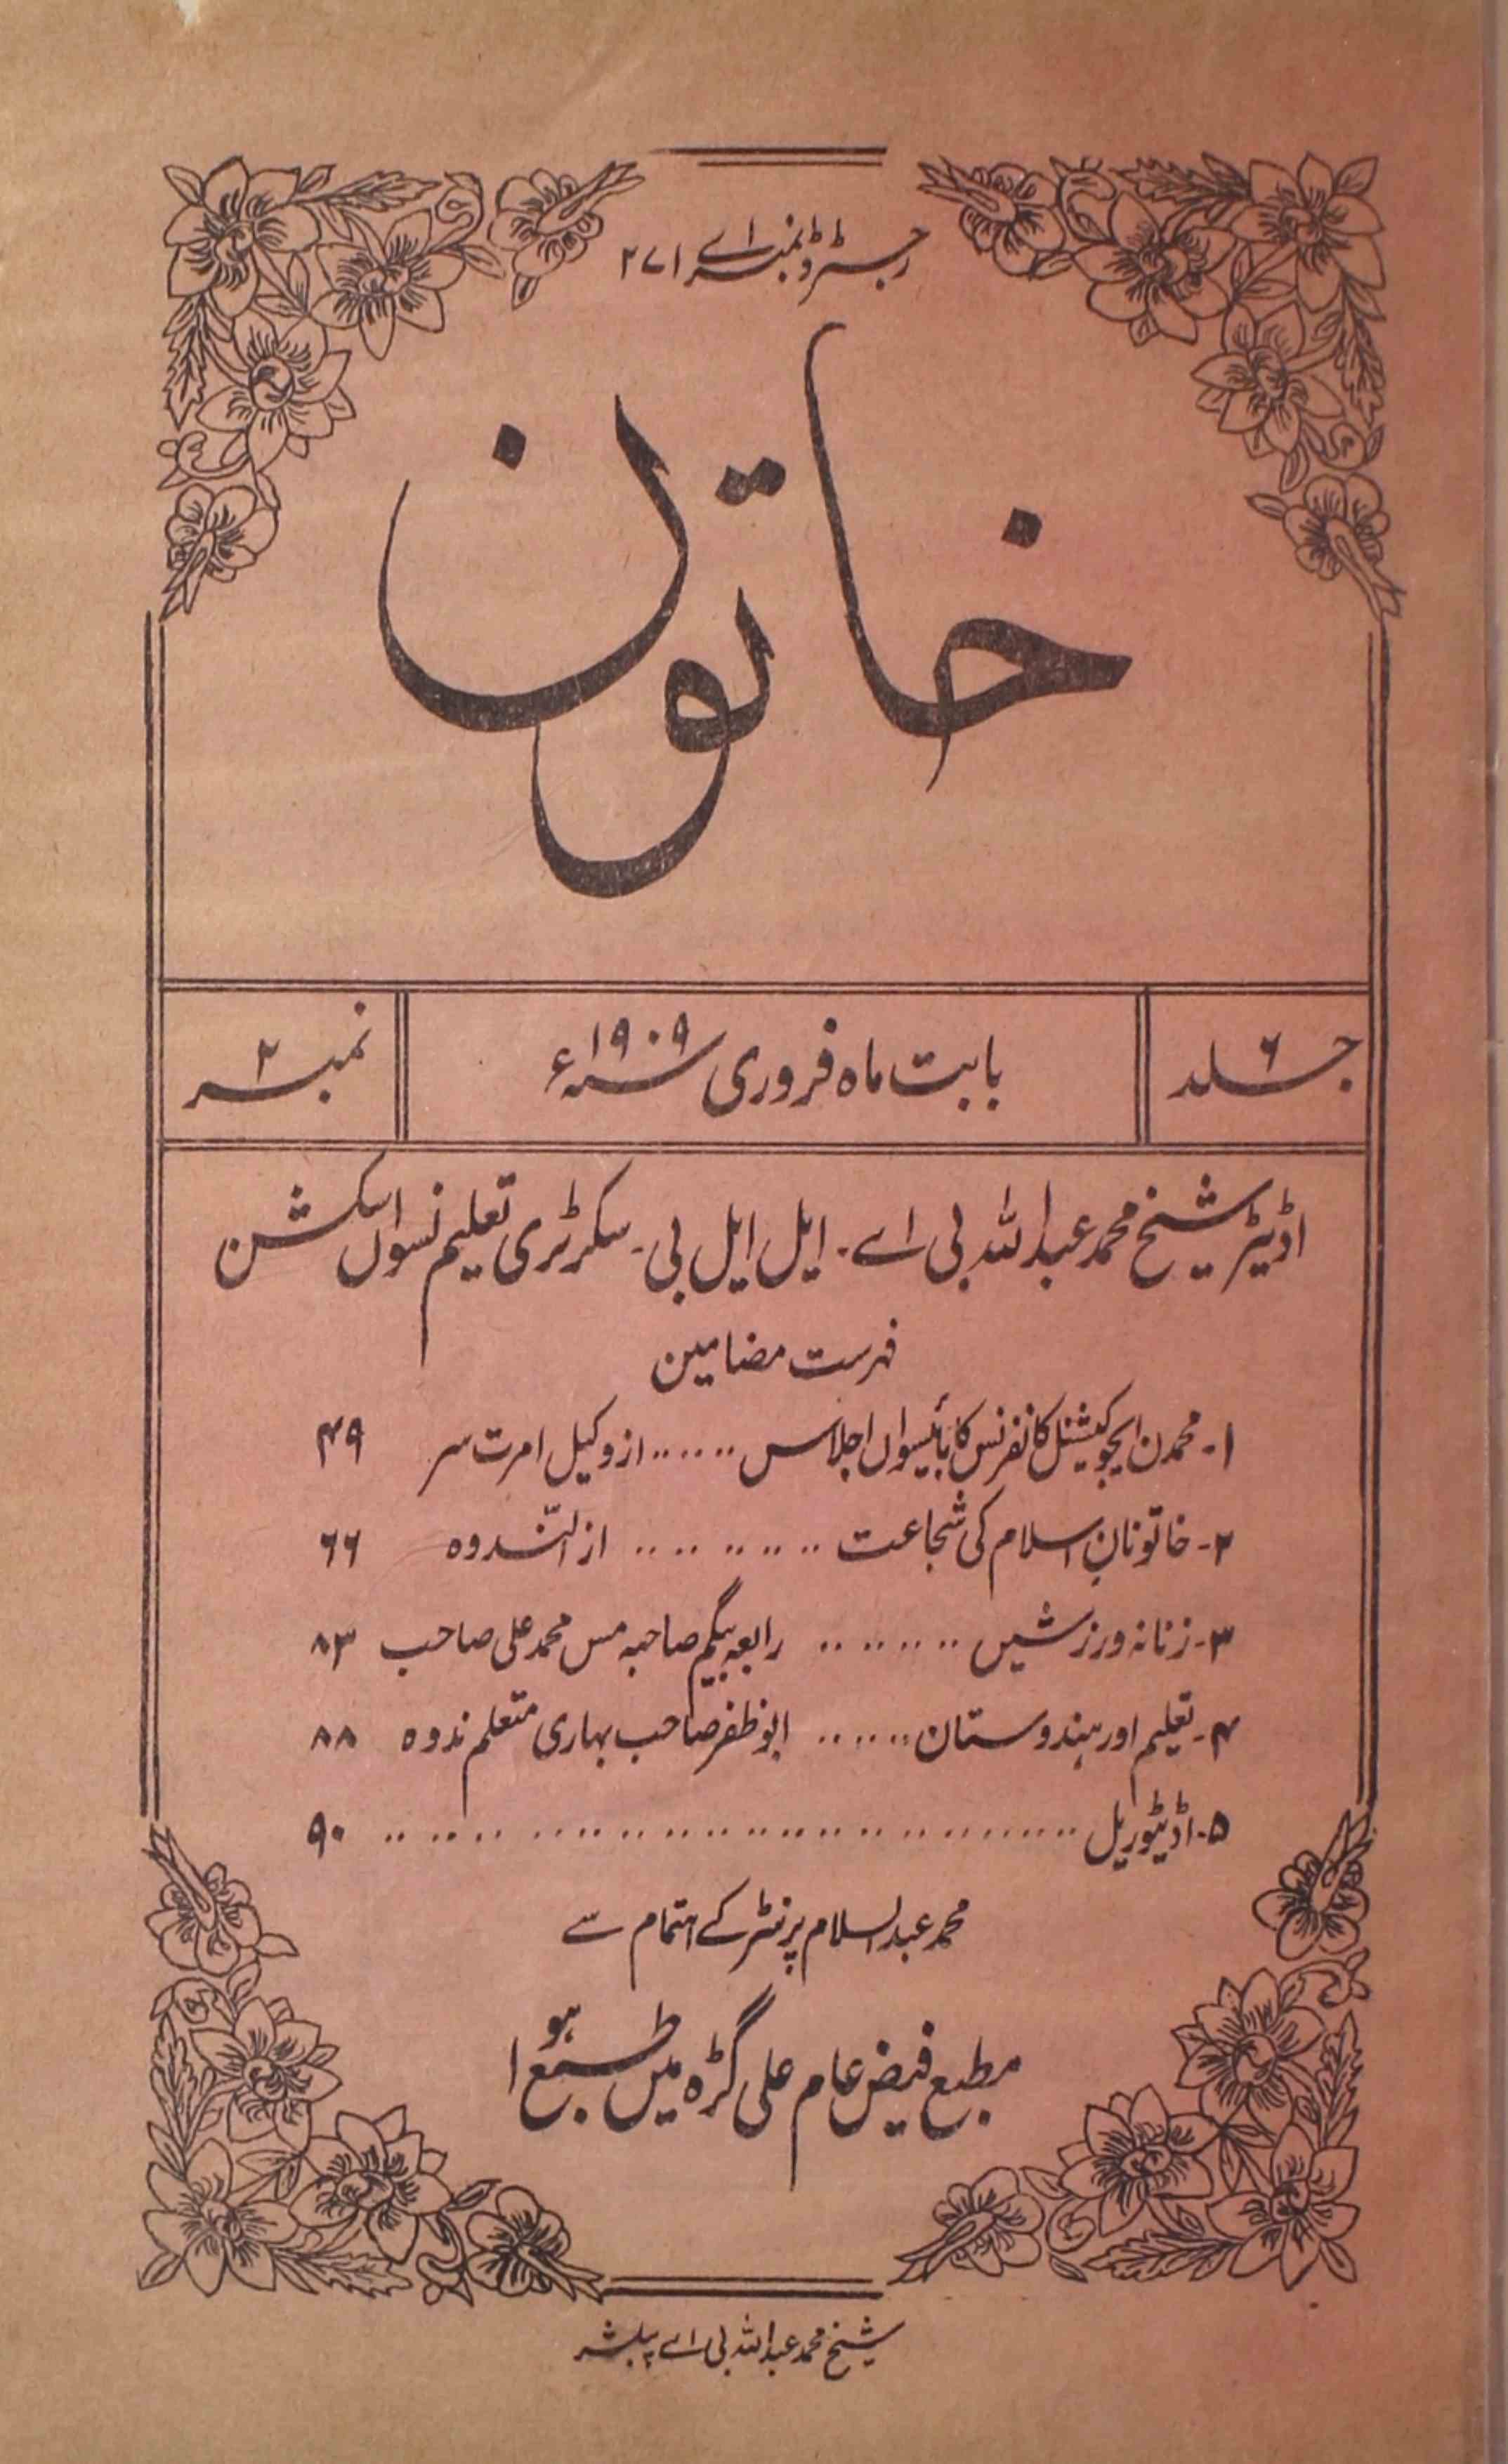 رجسٹرڈ نمبر اے ۲۷۱
خاتون
جلد ۶
بابت ماہ فروری سنہ ۱۹۰۹ء
نمبر ۲
اڈیٹر شیخ محمد عبداللہ بی اے۔ ایل ایل بی۔ سکرٹری تعلیم نسواں سکشن
فہرست مضامین
۱۔ محمدن ایجوکیشنل کانفرنس کا بائیسواں اجلاس ...... از وکیل امرت سر ۴۹
۲۔ خاتونانِ اسلام کی شجاعت .......... از النّدوہ ۶۶
۳۔ زنانہ ورزشیں ........ رابعہ بیگم صاحبہ مس محمد علی صاحب ۸۳
۴۔ تعلیم اور ہندوستان ...... ابو ظفر صاحب بہاری متعلم ندوہ ۸۸
۵۔ اڈیٹوریل .............................. ۹۰
محمد عبدالسلام پرنٹر کے اہتمام سے
مطبع فیض عام علی گڑہ میں طبع ہوا
شیخ محمد عبداللہ بی اے پبلشر